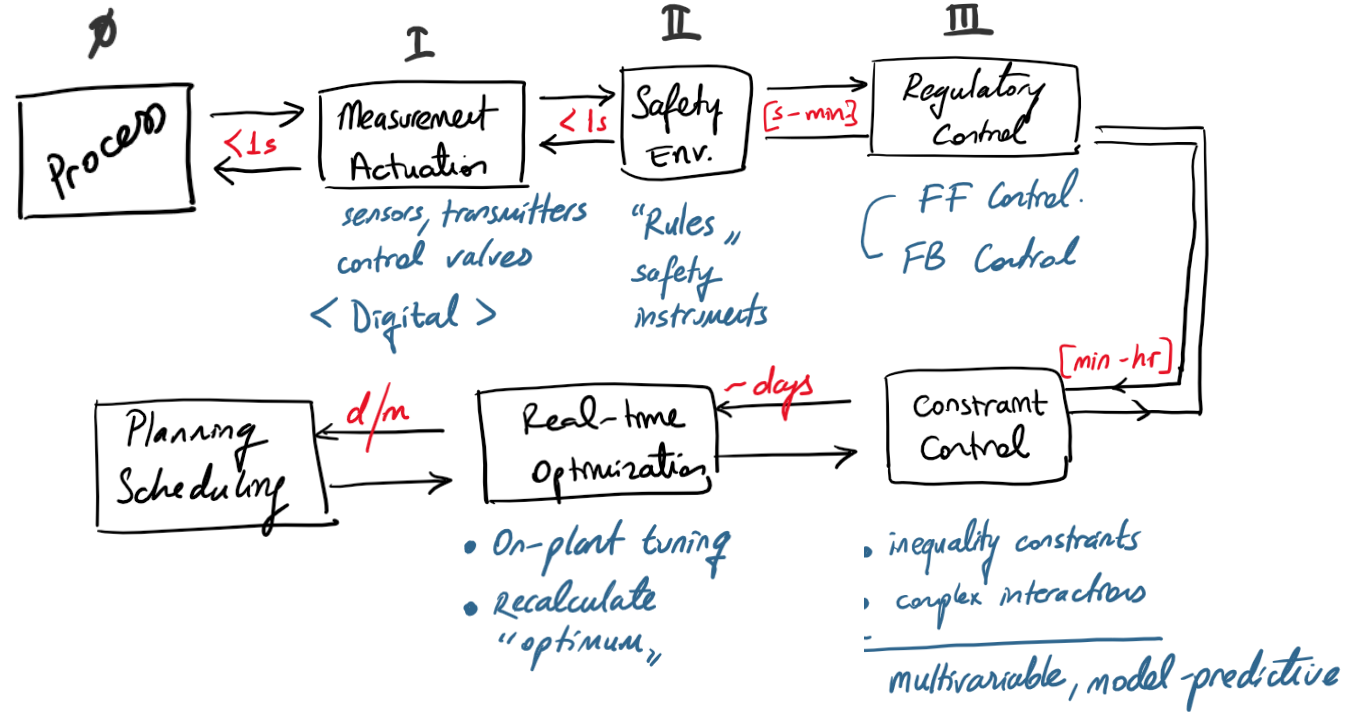 Ø
I
II
III
Process
<1s
Measurement
Actuation
<1s
Safety
Env.
[s-min]
Regulatory
Control
sensors, transmitters
control valves
< Digital >
"Rules"
safety
instruments
FF Control.
FB Control
[min-hr]
Planning
Scheduling
d/m
Real-time
Optimization
~days
Constraint
Control
• On-plant tuning
• Recalculate
"optimum"
• inequality constraints
• complex interactions
multivariable, model-predictive